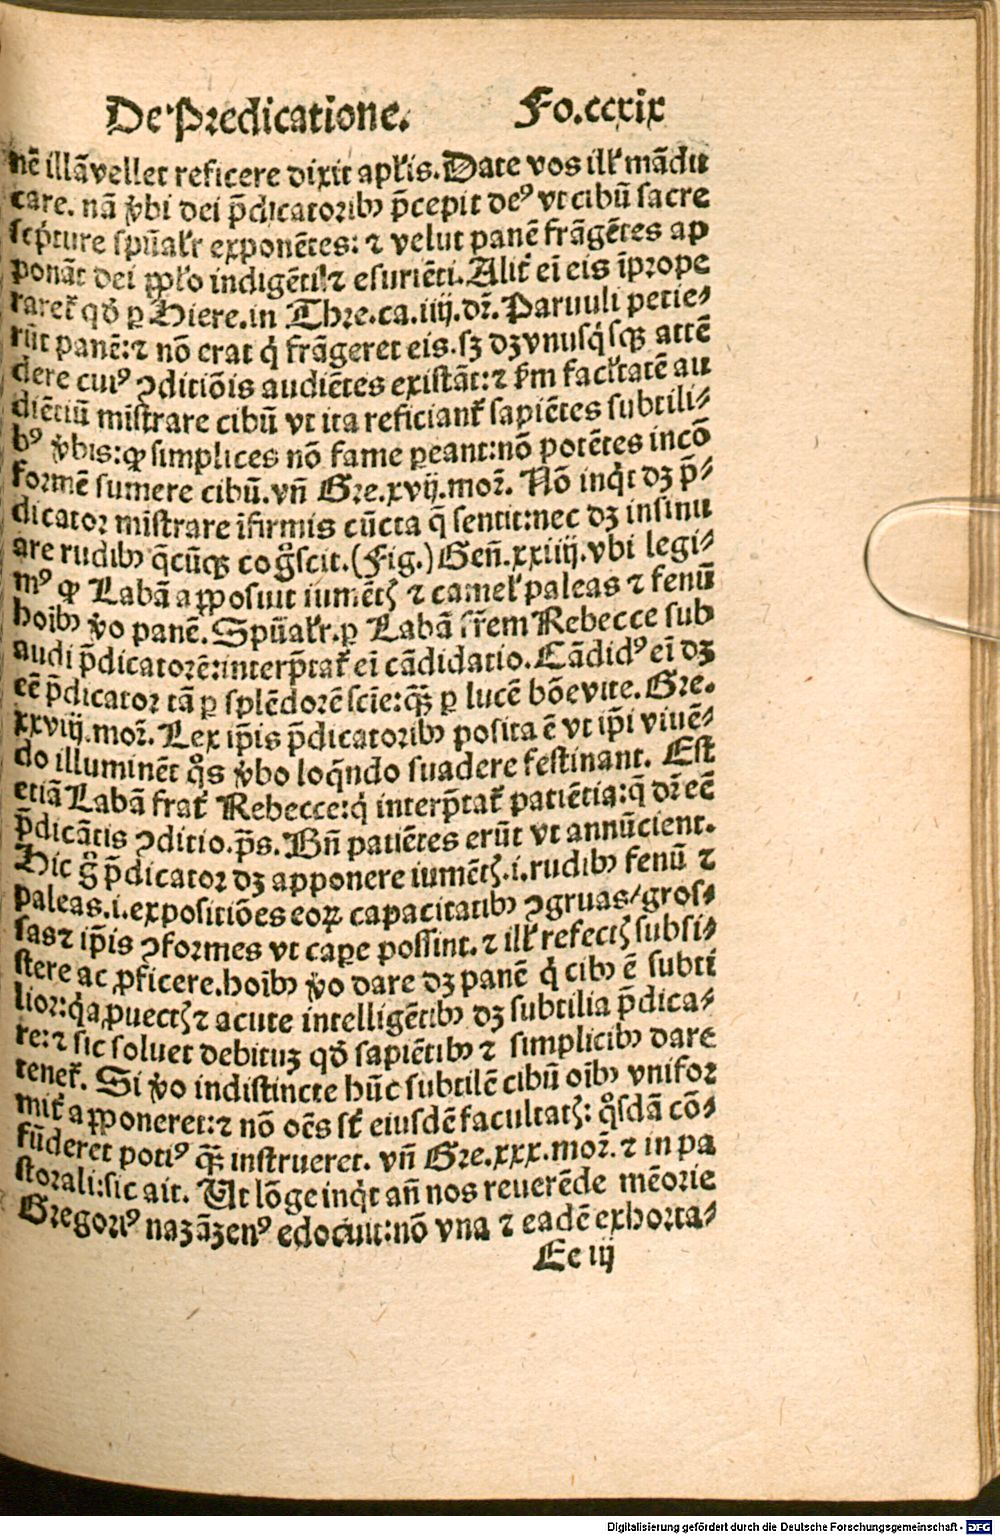 De Predicatione. Fo.ccxix
nē illā vellet reficere dixit apl'is. Date vos ill' mādu
care. nā v̓bi dei p̄dicatorib⁹ p̄cepit de⁹ vt cibū sacre
scp̓ture spūal'r exponētes: ⁊ velut panē frāgētes ap
ponāt dei pp̄l'o indigēti ⁊ esuriēti. Alit̓ ei̅ eis īprope
raret̓ qd̓ ꝑ Hiere. in Thre. ca. iiij. dr̄. Paruuli petie⸗
rūt panē: ⁊ nō erat q̓ frāgeret eis. sꝫ dꝫ vnusq̓sqꝫ attē
dere cui⁹ ꝯditiōis audiētes existāt: ⁊ s̓m facl'tatē au
diētiū mīstrare cibū vt ita reficiant̓ sapiētes subtili⸗
b⁹ v̓bis: ꝙ simplices nō fame pereant: nō potētes incō
formē sumere cibū. vn̄ Gre. xvij. mor̄. Nō inq̓t dꝫ p̄⸗
dicator mīstrare īfirmis cūcta q̄ sentit: nec dꝫ insinu
are rudib⁹ q̄cūqꝫ cog̓scit. (Fig.) Gen̄. xxiiij. vbi legi⸗
m⁹ ꝙ Labā apposuit iumēt̓ ⁊ camel' paleas ⁊ fenū
hoib⁹ v̓o panē. Spūal'r. ꝑ Labā fr̄em Rebecce sub
audi p̄dicatorē: interp̄tat̓ ei̅ cādidatio. Cādid⁹ ei̅ dꝫ
eē p̄dicator tā ꝑ splēdorē scīe: qꝫ̄ ꝑ lucē bōe vite. Gre.
xxviij. mor̄. Lex ip̄is p̄dicatorib⁹ posita ē vt ip̄i viuē⸗
do illuminēt q̓s v̓bo loq̄ndo suadere festinant. Est
etiā Labā frat̓ Rebecce: q̓ interp̄tat̓ patiētia: q̄ dr̄ eē
p̄dicātis ꝯditio. p̄s. Bn̄ patiētes erūt vt annūcient.
Hic g̓ p̄dicator dꝫ apponere iumēt̓. i. rudib⁹ fenū ⁊
paleas. i. expositiōes eoꝝ capacitatib⁹ ꝯgruas/ gros⸗
sas ⁊ ip̄is ꝯformes vt capere possint. ⁊ ill' refect̓ subsi⸗
stere ac ꝓficere. hoib⁹ v̓o dare dꝫ panē q̓ cib⁹ ē subti
lior: q̓a ꝓuect̓ ⁊ acute intelligētib⁹ dꝫ subtilia p̄dica⸗
re: ⁊ sic soluet debituꝫ qd̓ sapiētib⁹ ⁊ simplicib⁹ dare
tenet̓. Si v̓o indistincte hūc subtilē cibū oīb⁹ vnifor
mit̓ apponeret: ⁊ nō oēs st̓ eiusdē facultat̓: q̓sdā cō⸗
fūderet poti⁹ qꝫ̄ instrueret. vn̄ Gre. xxx. mor̄. ⁊ in pa
storali: sic ait. Ut lōge inq̓t an̄ nos reuerēde mēorie
Gregori⁹ nazāzen⁹ edocuit: nō vna ⁊ eadē exhorta⸗
Ee iij
Digitalisierung gefördert durch die Deutsche Forschungsgemeinschaft - DFG